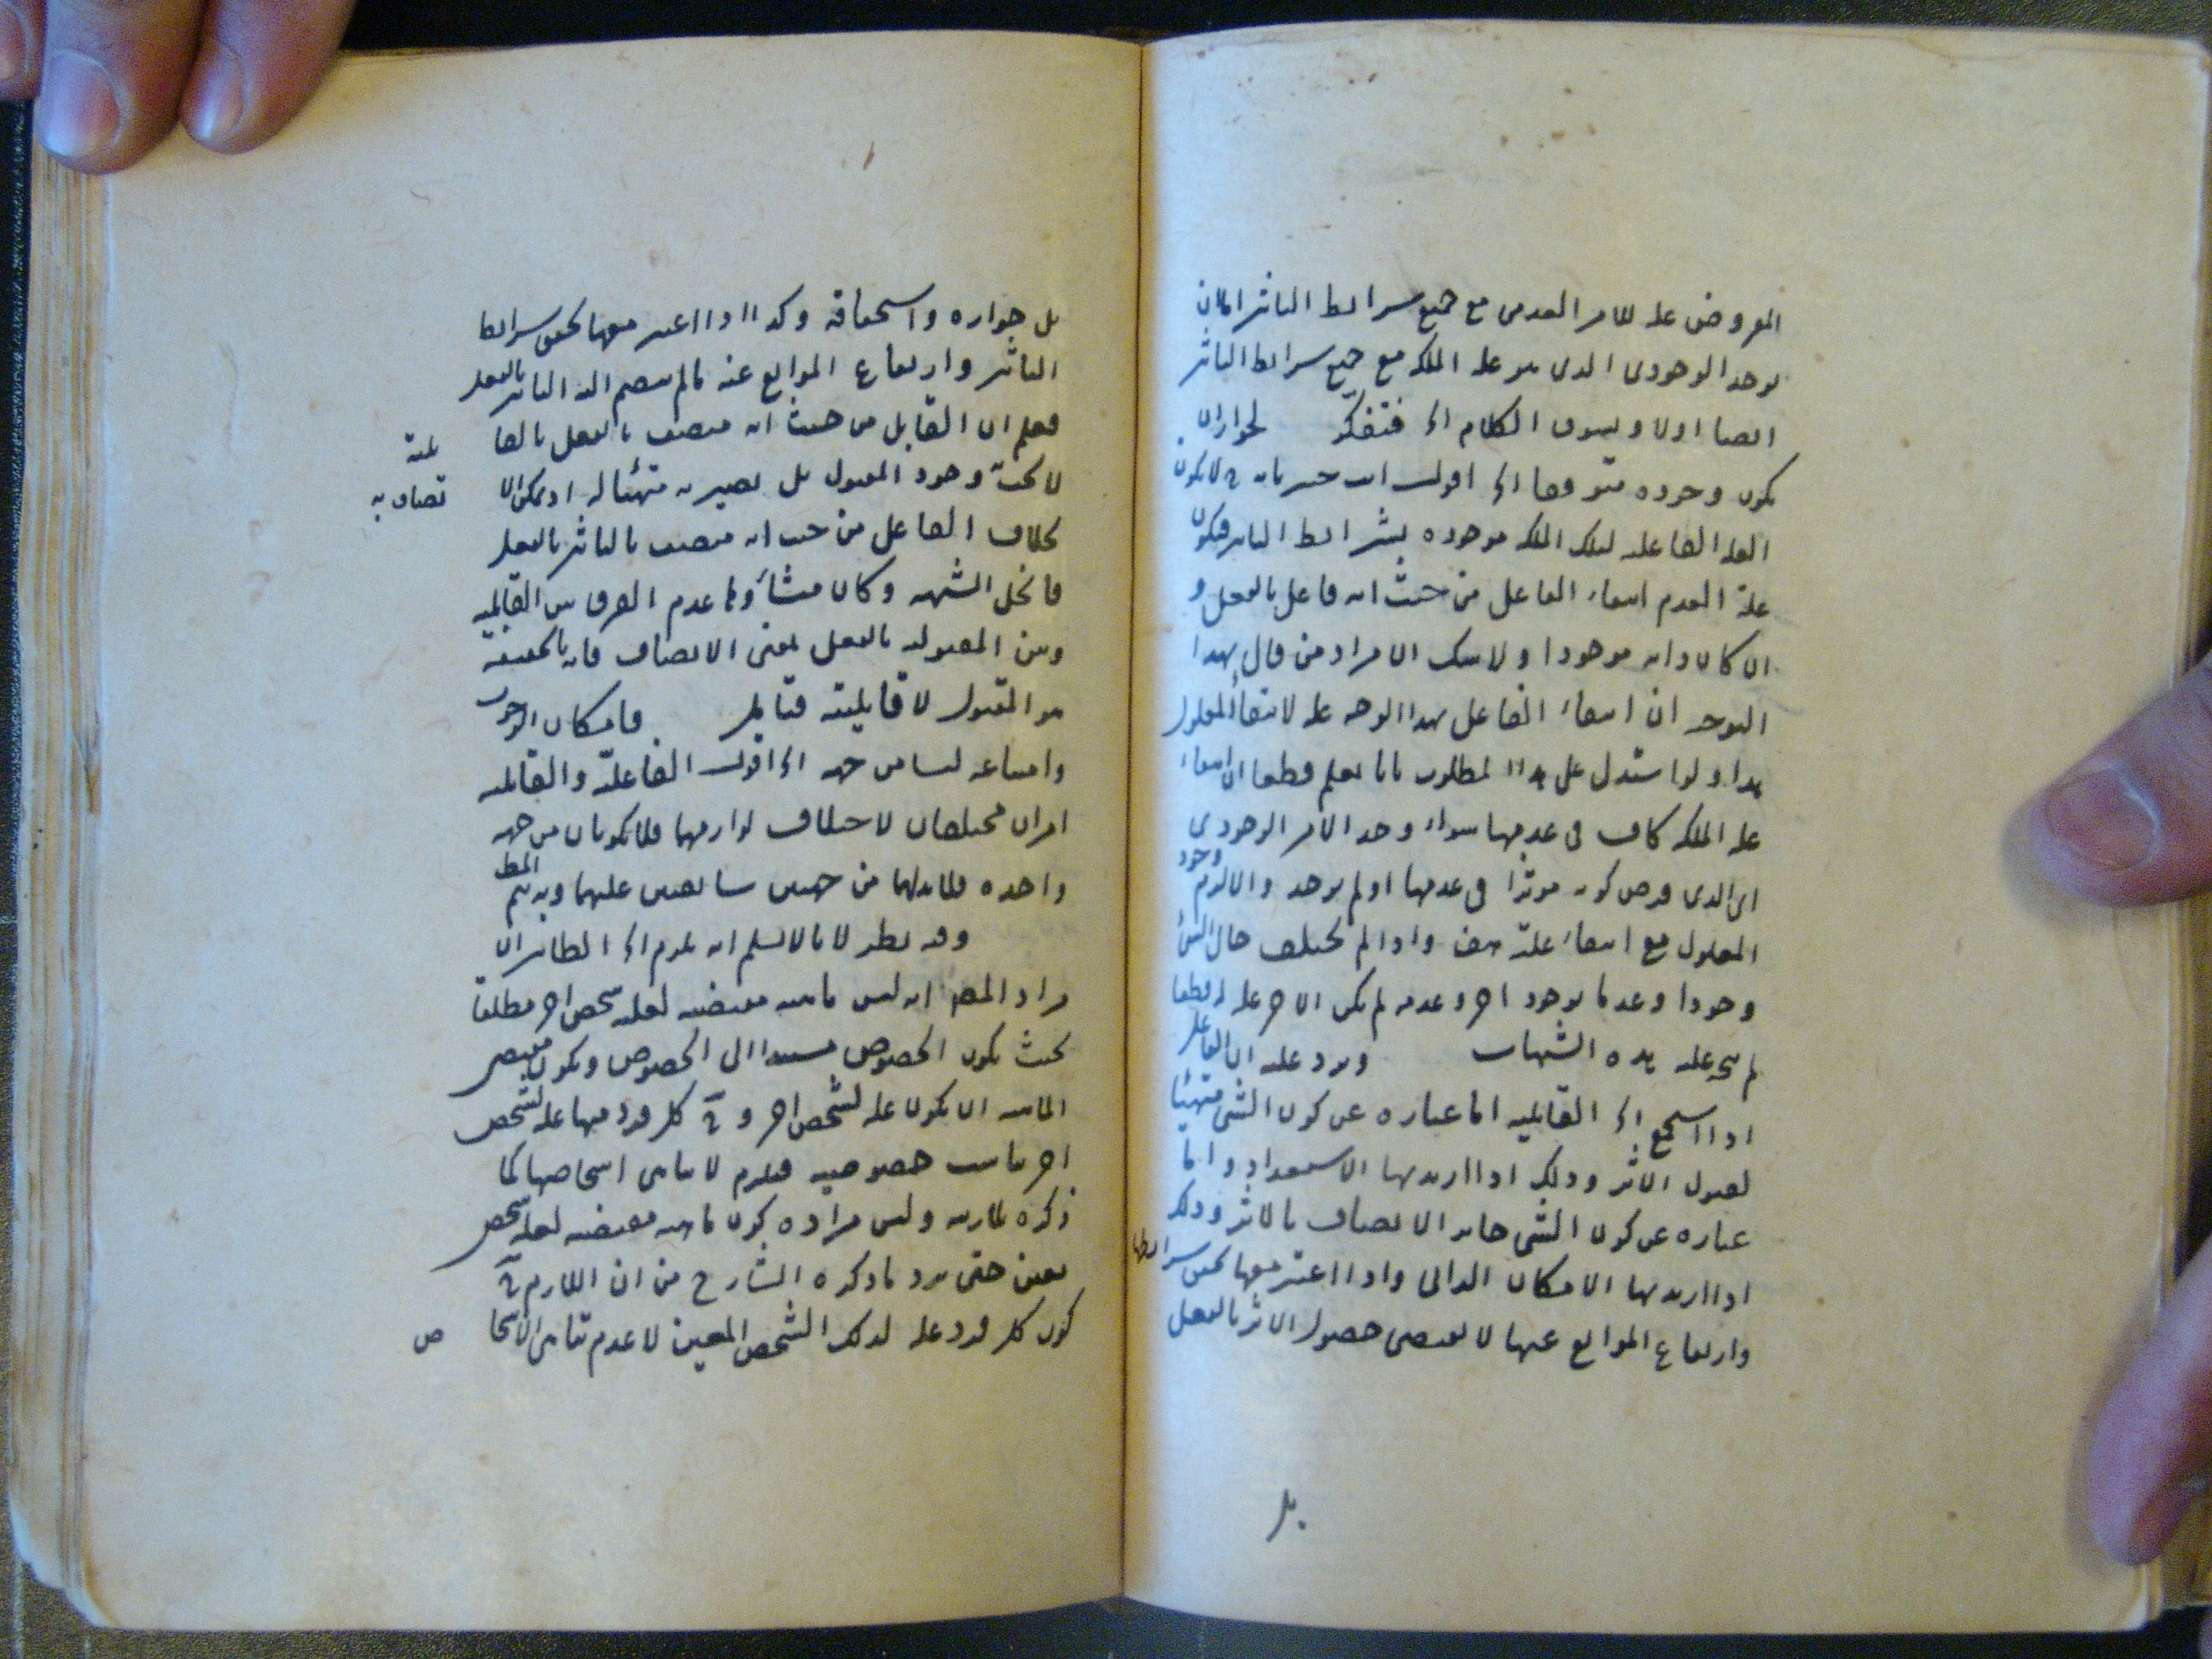 المفروض علة للامر العدمى مع جميع شرائط التاثير اما ان
يوجد الوجودى الذى هو علة الملكة مع جميع شرائط التاثير
ايضا اولا ويسوق الكلام الخ فتفكر لجواز ان
يكون وجوده متوقفا الخ اقول انت خبير بانه ح لا يكون
العلة الفاعلة لتلك الملكة موجودة بشرائط التاثير فيكون
علة العدم انتفاء الفاعل من حيث انه فاعل بالفعل و
ان كان ذاته موجودا ولا شك ان مراد من قال بهذا
التوجيه ان انتفاء الفاعل بهذا الوجه علة لانتفاء المعلول
هذا ولو استدل على هذا المطلوب بانا نعلم قطعا ان انتفاء
علة الملكة كاف فى عدمها سواء وجد الامر الوجودى
الذى فرض كونه موثرا فى عدمها او لم يوجد والا لزم وجود
المعلول مع انتفاء علته هف واذا لم يختلف حال الشئ
وجودا وعدما بوجود اخر وعدمه لم يكن الاخر علة له قطعا
لم يتجه عليه هذه الشبهات ويرد عليه ان الفاعل
اذا استجمع الخ القابلية اما عبارة عن كون الشئ متهيئا
لقبول الاثر وذلك اذا اريد بها الاستعداد واما
عبارة عن كون الشئ جائز الاتصاف بالاثر وذلك
اذا اريد بها الامكان الذاتى واذا اعتبر معها تحقق شرائطها
وارتفاع الموانع عنها لا يقتضى حصول الاثر بالفعل
بل
بل جوازه واستحقاقه وكذا اذا اعتبر معها تحقق شرائط
التاثير وارتفاع الموانع عنه ما لم ينضم اليه التاثير بالفعل
فعلم ان القابل من حيث انه متصف بالفعل بالقابلية
لا يجب وجود المقبول بل يصير به متهيئا له اذ يمكن الاتصاف به
بخلاف الفاعل من حيث انه متصف بالتاثير بالفعل
فانحل الشبهة وكان منشاؤها عدم الفرق بين القابلية
وبين المقبولية بالفعل بمعنى الاتصاف فانه بالحقيقة
هو المقبول لا قابليته فتامل فامكان الوجوب
وامتناعه ليسا من جهة الخ اقول الفاعلية والقابلية
امران مختلفان لاختلاف لوازمهما فلا يكونان من جهة
واحدة فلا بد لهما من جهتين سابقتين عليهما وبه يتم المط
وفيه نظر لانا لا نسلم انه يلزم الخ الظاهر ان
مراد المصر انه ليس ماهية مقتضية لعلية شخص اخر مطلقا
بحيث يكون الخصوص مستندا الى الخصوص ويكون مقتضى
الماهية ان يكون علة لشخص اخر و ح كل فرد منها علة لشخص
اخر ماهية خصوصية فيلزم لا تناهى اشخاصها كما
ذكره الشارح وليس مراده كون ماهية مقتضية لعلية شخص
معين حتى يرد ما ذكره الشارح من ان اللازم ح
كون كل فرد علة لذلك الشخص المعين لا عدم تناهى الاشخاص